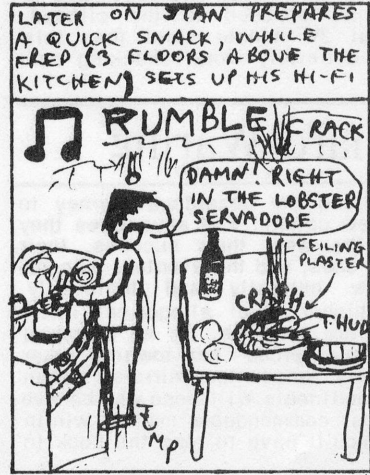 LATER ON STAN PREPARES
A QUICK SNACK, WHILE
FRED (3 FLOORS ABOVE THE
KITCHEN) SETS UP HIS HI-FI
RUMBLE
CRACK
DAMN! RIGHT
IN THE LOBSTER
SERVADORE
CEILING
PLASTER
CRASH
THUD